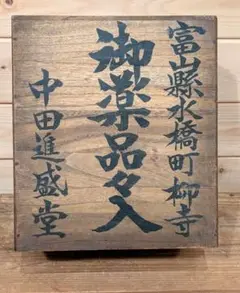 富山縣水橋町柳寺
御薬品々入
中田進盛堂